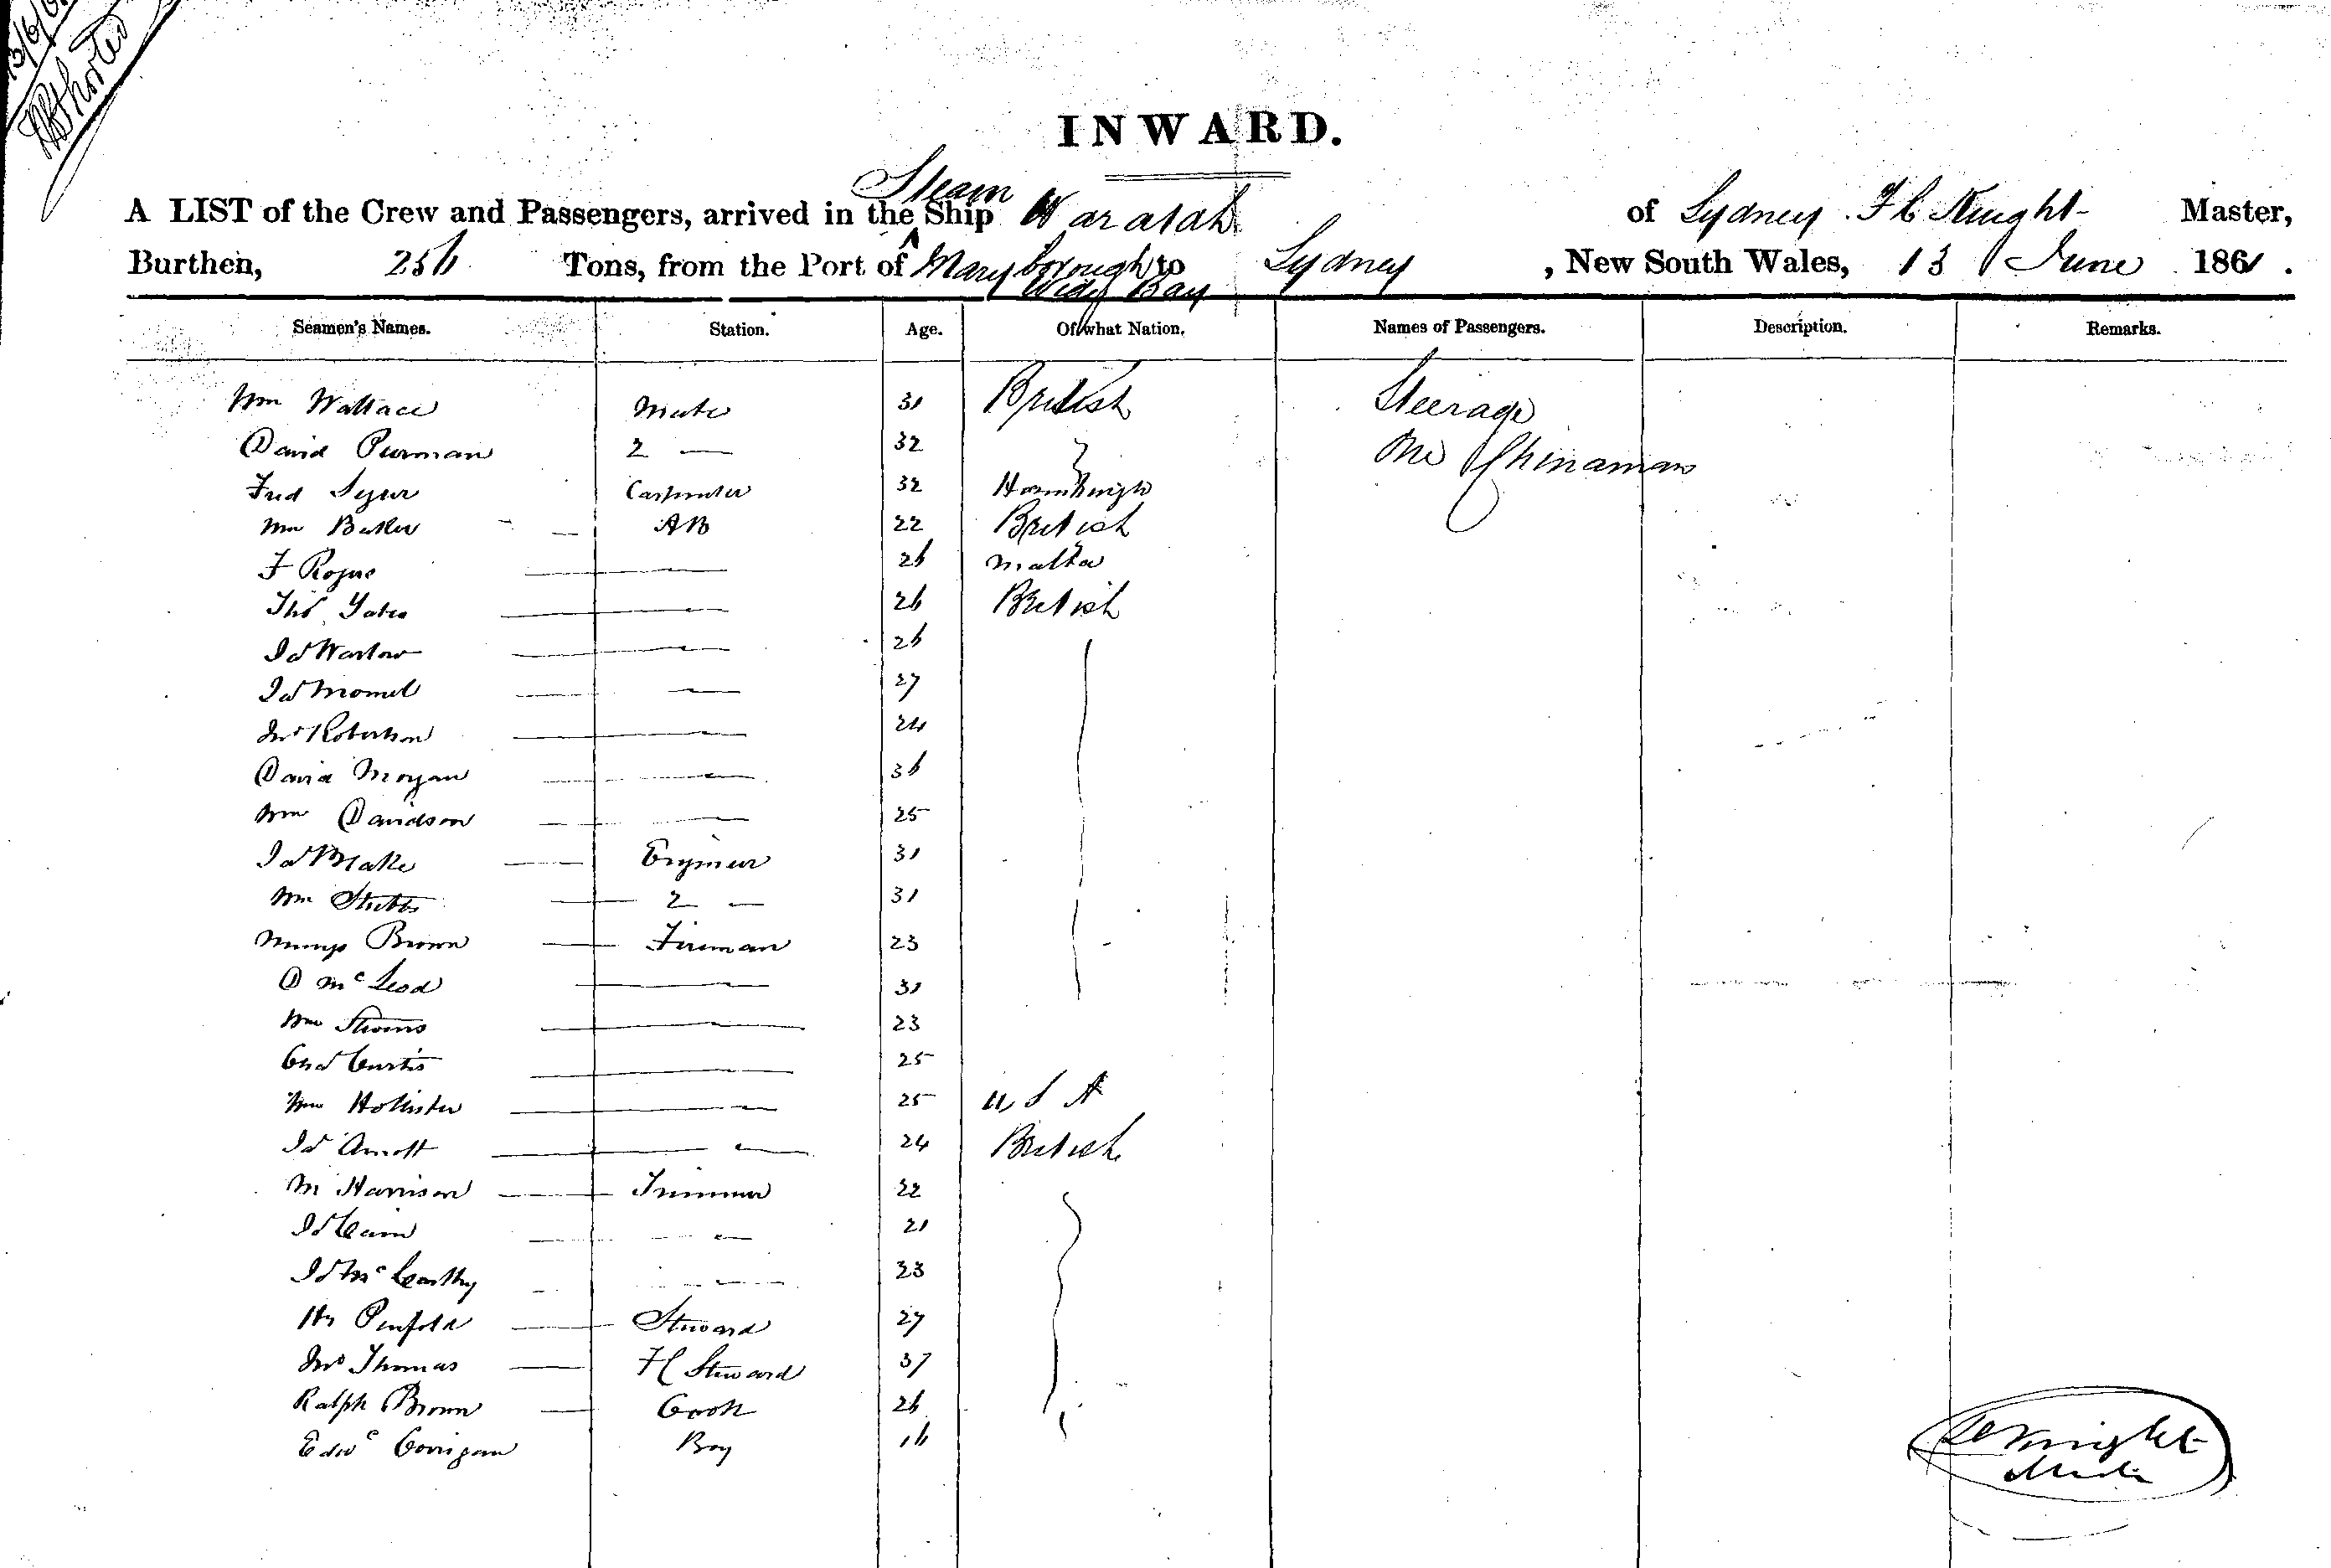 INWARD.
A LIST of the Crew and Passengers, arrived in the Steam Ship Waratah of Sydney F C Knight Master,
Burthen, 256 Tons, from the Port of Maryborough Wide Bay to Sydney , New South Wales, 13 June 1861.
Seamen's Names. Station. Age. Of what Nation. Names of Passengers. Description. Remarks.
Wm Wallace Mate 31 British Steerage
David Purman 2 — 32 One Chinaman
Fred Carpenter 32
Wm Baker — AB 22 British
F — 26 Malta
Thos Yates — 26 British
Jas Warlow — 26
Jas — 27
Jno Robertson — 24
David Morgan — 36
Wm Davidson — 25
Jas Blake — Engineer 31
Wm Stubbs — 2 — 31
Mungo Brown — Fireman 23
D McLeod — 31
Wm — 23
Chas Curtis — 25
Wm Hollister — 25 U S A
Jas Arnott — 24 British
M Harrison — Trimmer 22
Jas Cain — 21
Jas McCarthy — 23
Hy Penfold — Steward 27
Jno Thomas — F C Steward 37
Ralph Brown — Cook 26
Edwd Corrigan Boy 16
F C Knight
Master